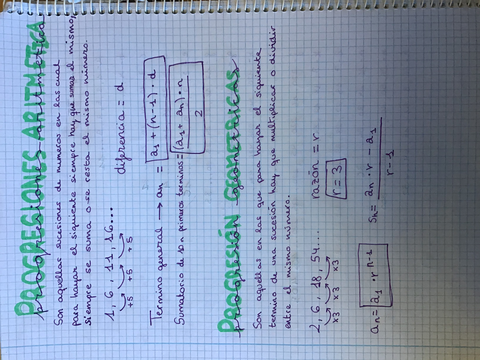 PROGRESIONES ARITMÉTICA
progresiones aritmética
Son aquellas sucesiones de numeros en las cual
para hayar el siguiente siempre hay que sumar el mismo,
siempre se suma o se resta el mismo número.
1, 6, 11, 16... diferencia = d
+5 +5 +5
Termino general → an = a1 + (n-1) · d
Sumatorio de los n primeros terminos = (a1 + an) · n
2
PROGRESIÓN GEOMETRICAS
progresión geometricas
Son aquellas en las que para hayar el siguiente
termino de una sucesión hay que multiplicar o dividir
entre el mismo número.
2, 6, 18, 54... razón = r
x3 x3 x3 r = 3
an = a1 · r n-1 Sn = an · r - a1
r - 1